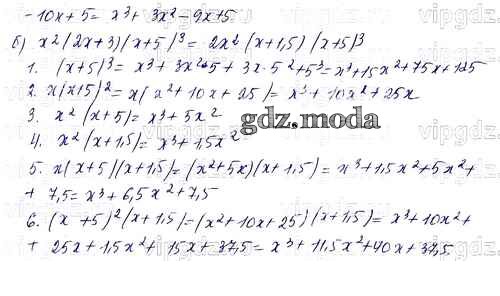 - 10x + 5 = x³ + 3x² - 9x + 5.
б) x² (2x + 3) (x + 5)³ = 2x² (x + 1,5) (x + 5)³
1. (x + 5)³ = x³ + 3x² · 5 + 3x · 5² + 5³ = x³ + 15x² + 75x + 125
2. x(x + 5)² = x(x² + 10x + 25) = x³ + 10x² + 25x
3. x² (x + 5) = x³ + 5x²
gdz.moda
4. x² (x + 1,5) = x³ + 1,5x²
5. x(x + 5)(x + 1,5) = (x² + 5x)(x + 1,5) = x³ + 1,5x² + 5x² +
+ 7,5 = x³ + 6,5x² + 7,5
6. (x + 5)² (x + 1,5) = (x² + 10x + 25) (x + 1,5) = x³ + 10x² +
+ 25x + 1,5x² + 15x + 37,5 = x³ + 11,5x² + 40x + 37,5.